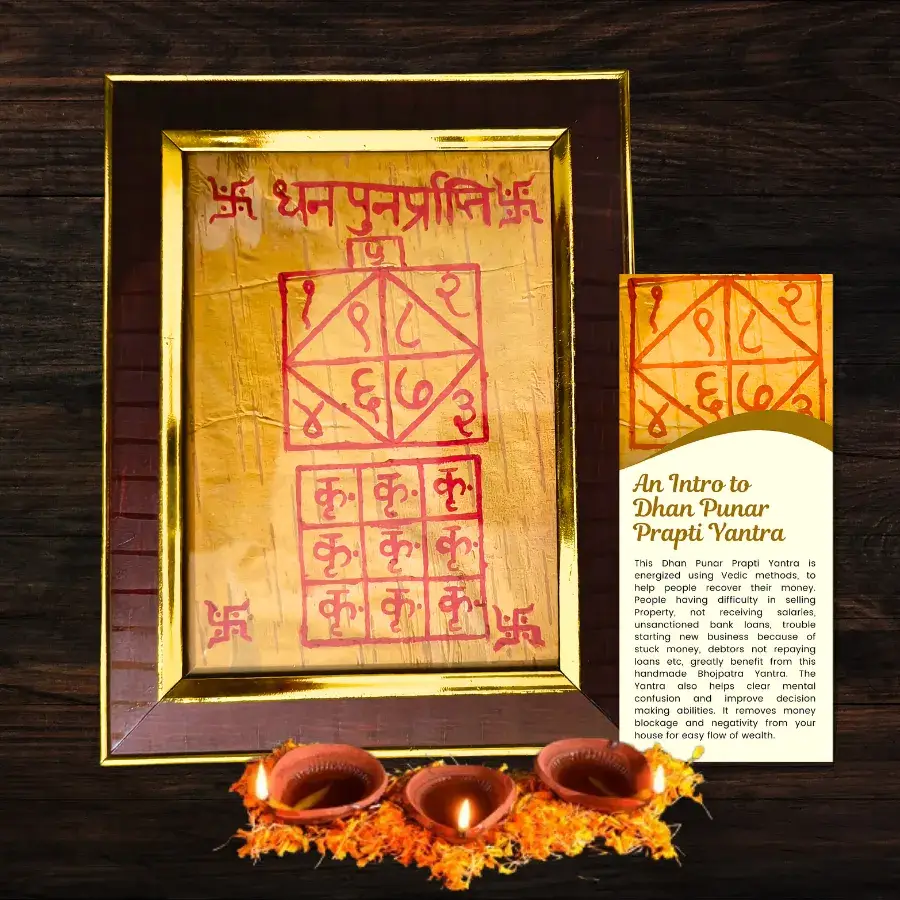 धन पुनर्प्राप्ति
५
१ ९ ८ २
४ ६ ७ ३
कृ. कृ. कृ.
कृ. कृ. कृ.
कृ. कृ. कृ.
१ ९ ८ २
४ ६ ७ ३
An Intro to
Dhan Punar
Prapti Yantra
This Dhan Punar Prapti Yantra is
energized using Vedic methods, to
help people recover their money.
People having difficulty in selling
Property, not receiving salaries,
unsanctioned bank loans, trouble
starting new business because of
stuck money, debtors not repaying
loans etc, greatly benefit from this
handmade Bhojpatra Yantra. The
Yantra also helps clear mental
confusion and improve decision
making abilities. It removes money
blockage and negativity from your
house for easy flow of wealth.